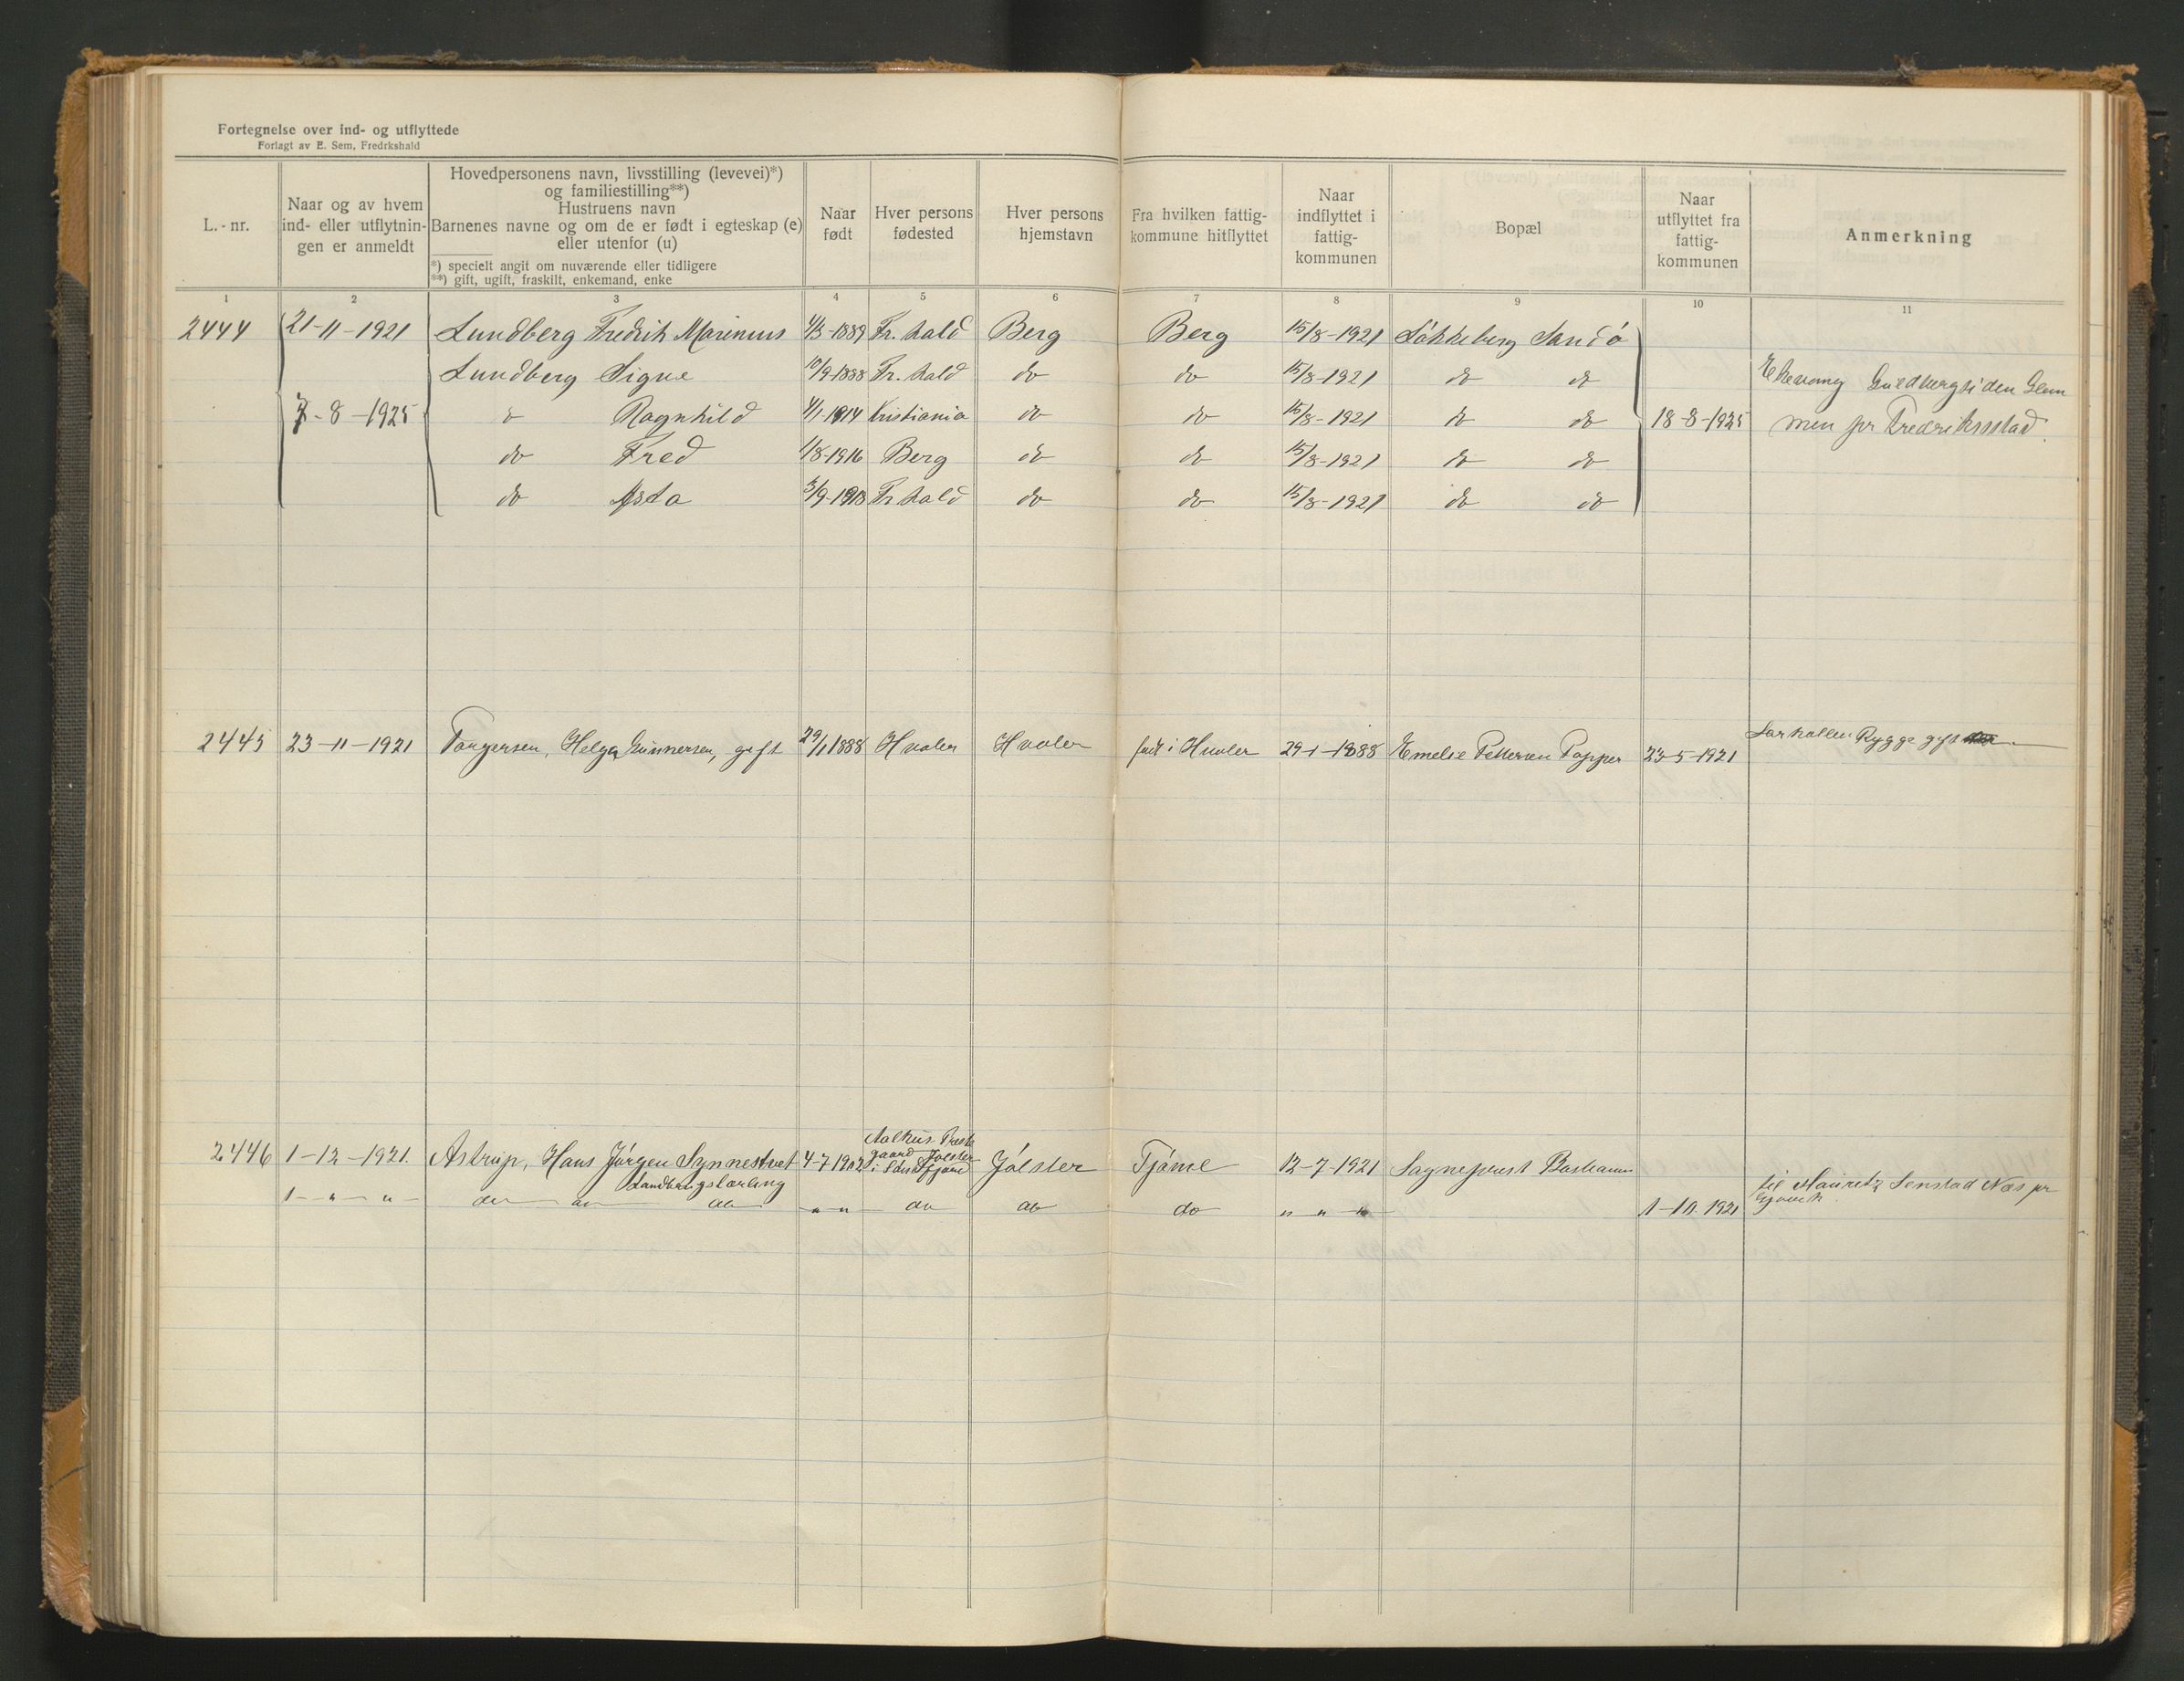 Fortegnelse over ind- og utflyttede
Forlagt av E. Sem, Fredrkshald
L.-nr.
Naar og av hvem
ind- eller utflytnin-
gen er anmeldt
Hovedpersonens navn, livsstilling (levevei)*)
og familiestilling**)
Hustruens navn
Barnenes navne og om de er født i egteskap (e)
eller utenfor (u)
*) specielt angit om nuværende eller tidligere
**) gift, ugift, fraskilt, enkemand, enke
Naar
født
Hver persons
fødested
Hver persons
hjemstavn
Fra hvilken fattig-
kommune hitflyttet
Naar
indflyttet i
fattig-
kommunen
Bopæl
Naar
utflyttet fra
fattig-
kommunen
Anmerkning
1 2 3 4 5 6 7 8 9 10 11
2444 21-11-1921 Lundberg Fredrik Marinius 4/3-1889 Fr.hald Berg Berg 15/8-1921 Løkkeberg Sandø
Lundberg Signe 10/9-1888 Fr.hald do do 15/8-1921 do do
7-8-1925 do Ragnhild 4/1-1914 Kristiania do do 15/8-1921 do do 18-8-1925
Guldbergsiden Glem
men pr Fredriksstad.
do Fred 1/8-1916 Berg do do 15/8-1921 do do
do Asta 3/9-1918 Fr hald do do 15/8-1921 do do
2445 23-11-1921 Torgersen, Helga Gunnersen, gift 29/1 1888 Hvaler Hvaler født i Hvaler 29-1-1888 Emelie Pettersen Papper 23-5-1921 Larkollen Rygge gift
2446 1-12-1921. Astrup, Hans Jørgen Synnestvet 4-7 1902 Aalhus Preste
gaard Jølster
i Søndfjord Jølster Tjøme 12-7-1921 Sogneprest Bashamm
Landbrugslærling
1 - " - " do do do - " " - do do do " " " 1-11. 1921 til Mauritz Senstad Næs pr
Gjøvik